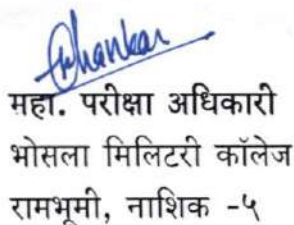 महा. परीक्षा अधिकारी
भोसला मिलिटरी कॉलेज
रामभूमी, नाशिक -५